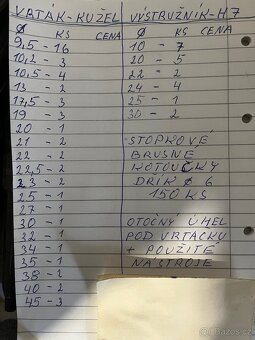 VRTÁK-KUŽEL
Ø KS CENA
9,5 - 16
10,2 - 3
10,5 - 4
13 - 2
17,5 - 3
19 - 3
20 - 1
21 - 2
22 - 2
22,5 - 2
23 - 2
25 - 1
27 - 1
30 - 1
32 - 1
34 - 1
35 - 1
38 - 2
40 - 2
45 - 3
VÝSTRUŽNÍK-H7
Ø KS CENA
10 - 7
20 - 5
22 - 2
24 - 4
25 - 1
30 - 2
STOPKOVÉ
BRUSNÉ
KOTOUČKY
DRÍK Ø 6
150 KS
OTOČNÝ ÚHEL
POD VRTAČKU
+ POUŽITÉ
NÁSTROJE